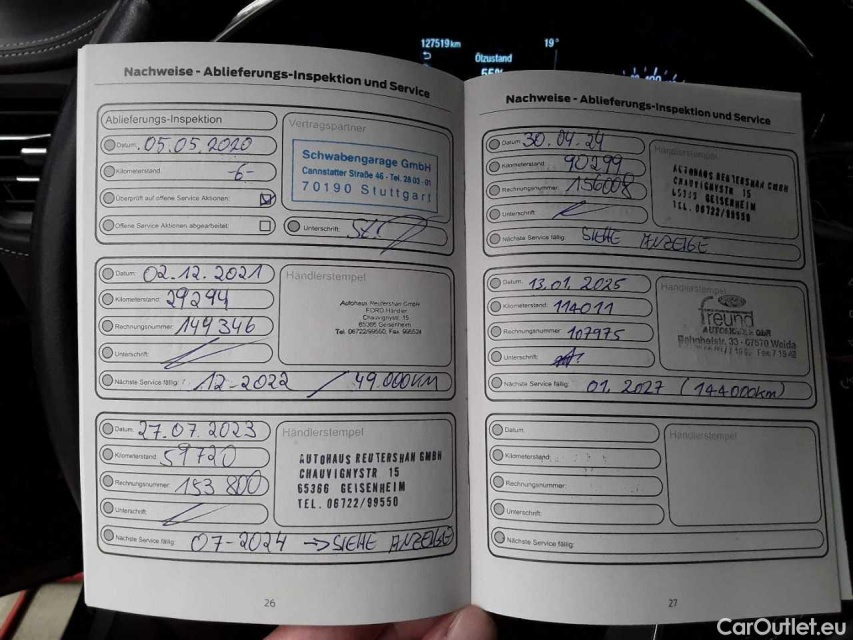 127519km
19°
Ölzustand
55%
Nachweise - Ablieferungs-Inspektion und Service
Ablieferungs-Inspektion
Datum: 05.05.2020
Kilometerstand: -6-
Überprüft auf offene Service Aktionen:
Offene Service Aktionen abgearbeitet:
Vertragspartner
Schwabengarage GmbH
Cannstatter Straße 46 - Tel. 28 03 - 01
70190 Stuttgart
Unterschrift:
Datum: 02.12.2021
Kilometerstand: 29294
Rechnungsnummer: 149346
Unterschrift:
Händlerstempel
Autohaus Reutershan GmbH
FORD Händler
Chauvignystr. 15
65366 Geisenheim
Tel. 06722/99550, Fax.
Nächste Service fällig: 12-2022 / 49.000KM
Datum: 27.07.2023
Kilometerstand: 59720
Rechnungsnummer: 153800
Unterschrift:
Händlerstempel
AUTOHAUS REUTERSHAN GMBH
CHAUVIGNYSTR 15
65366 GEISENHEIM
TEL. 06722/99550
Nächste Service fällig: 07-2024 → SIEHE ANZEIGE
26
Nachweise - Ablieferungs-Inspektion und Service
Datum: 30.04.24
Kilometerstand: 90299
Rechnungsnummer: 156008
Unterschrift:
Händlerstempel
AUTOHAUS REUTERSHAN GMBH
CHAUVIGNYSTR 15
65366 GEISENHEIM
TEL. 06722/99550
Nächste Service fällig: SIEHE ANZEIGE
Datum: 13.01.2025
Kilometerstand: 114011
Rechnungsnummer: 107975
Unterschrift:
Händlerstempel
freund
Bahnhofstr. 33 - 07570 Weida
Nächste Service fällig: 01.2027 (144000km)
Datum:
Kilometerstand:
Rechnungsnummer:
Unterschrift:
Händlerstempel
Nächste Service fällig:
27
CarOutlet.eu